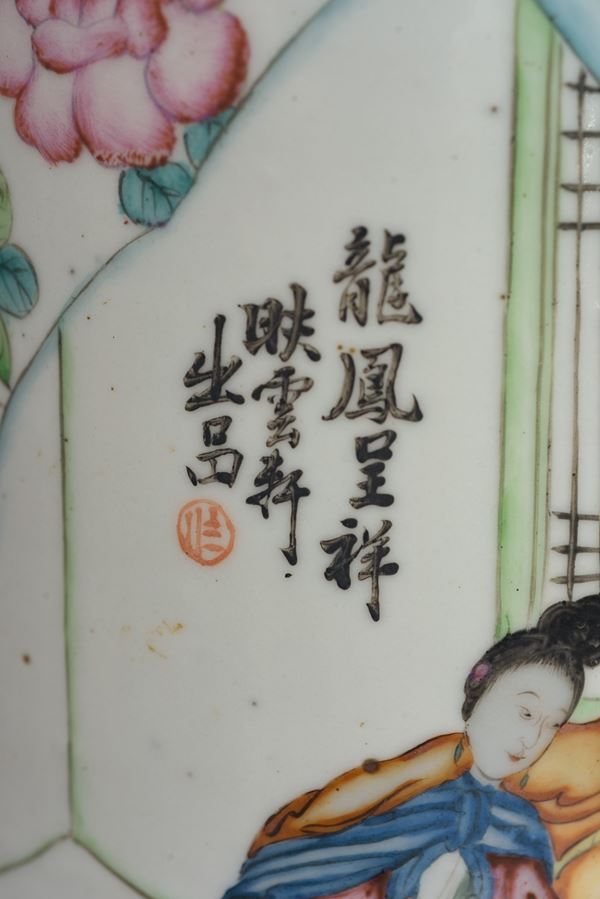 龍鳳呈祥
映雲軒
出品